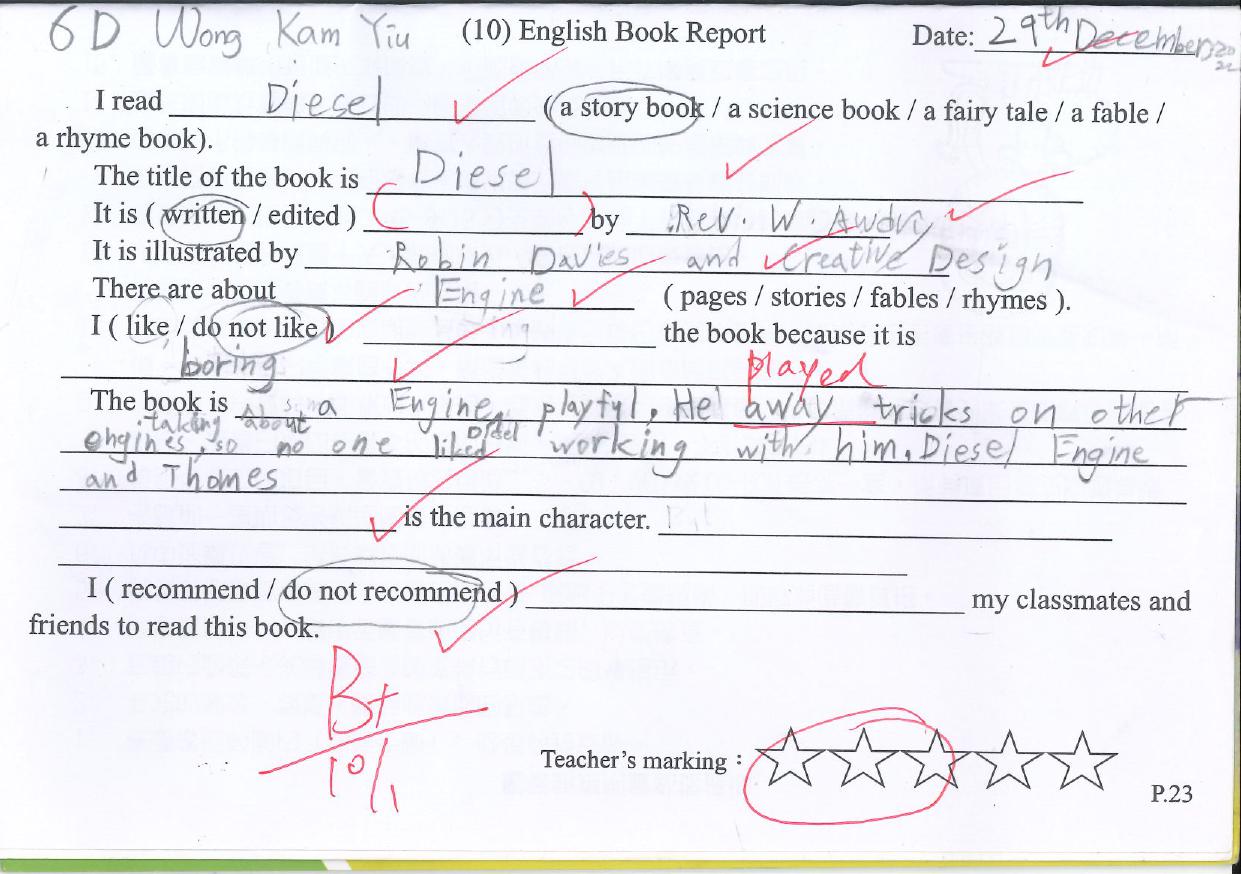 6D Wong Kam Yiu (10) English Book Report Date: 29th December, 2022
I read Diesel (a story book / a science book / a fairy tale / a fable /
a rhyme book).
The title of the book is Diesel
It is ( written / edited ) ( ) by Rev. W. Awdry
It is illustrated by Robin Davies and Creative Design
There are about Engine ( pages / stories / fables / rhymes ).
I ( like / do not like ) the book because it is
boring played
The book is a Engine playful. He away tricks on other
taking about
engines, so no one liked Diesel working with him. Diesel Engine
and Thomes
is the main character.
I ( recommend / do not recommend ) my classmates and
friends to read this book.
B+
10/1
Teacher's marking :
P.23